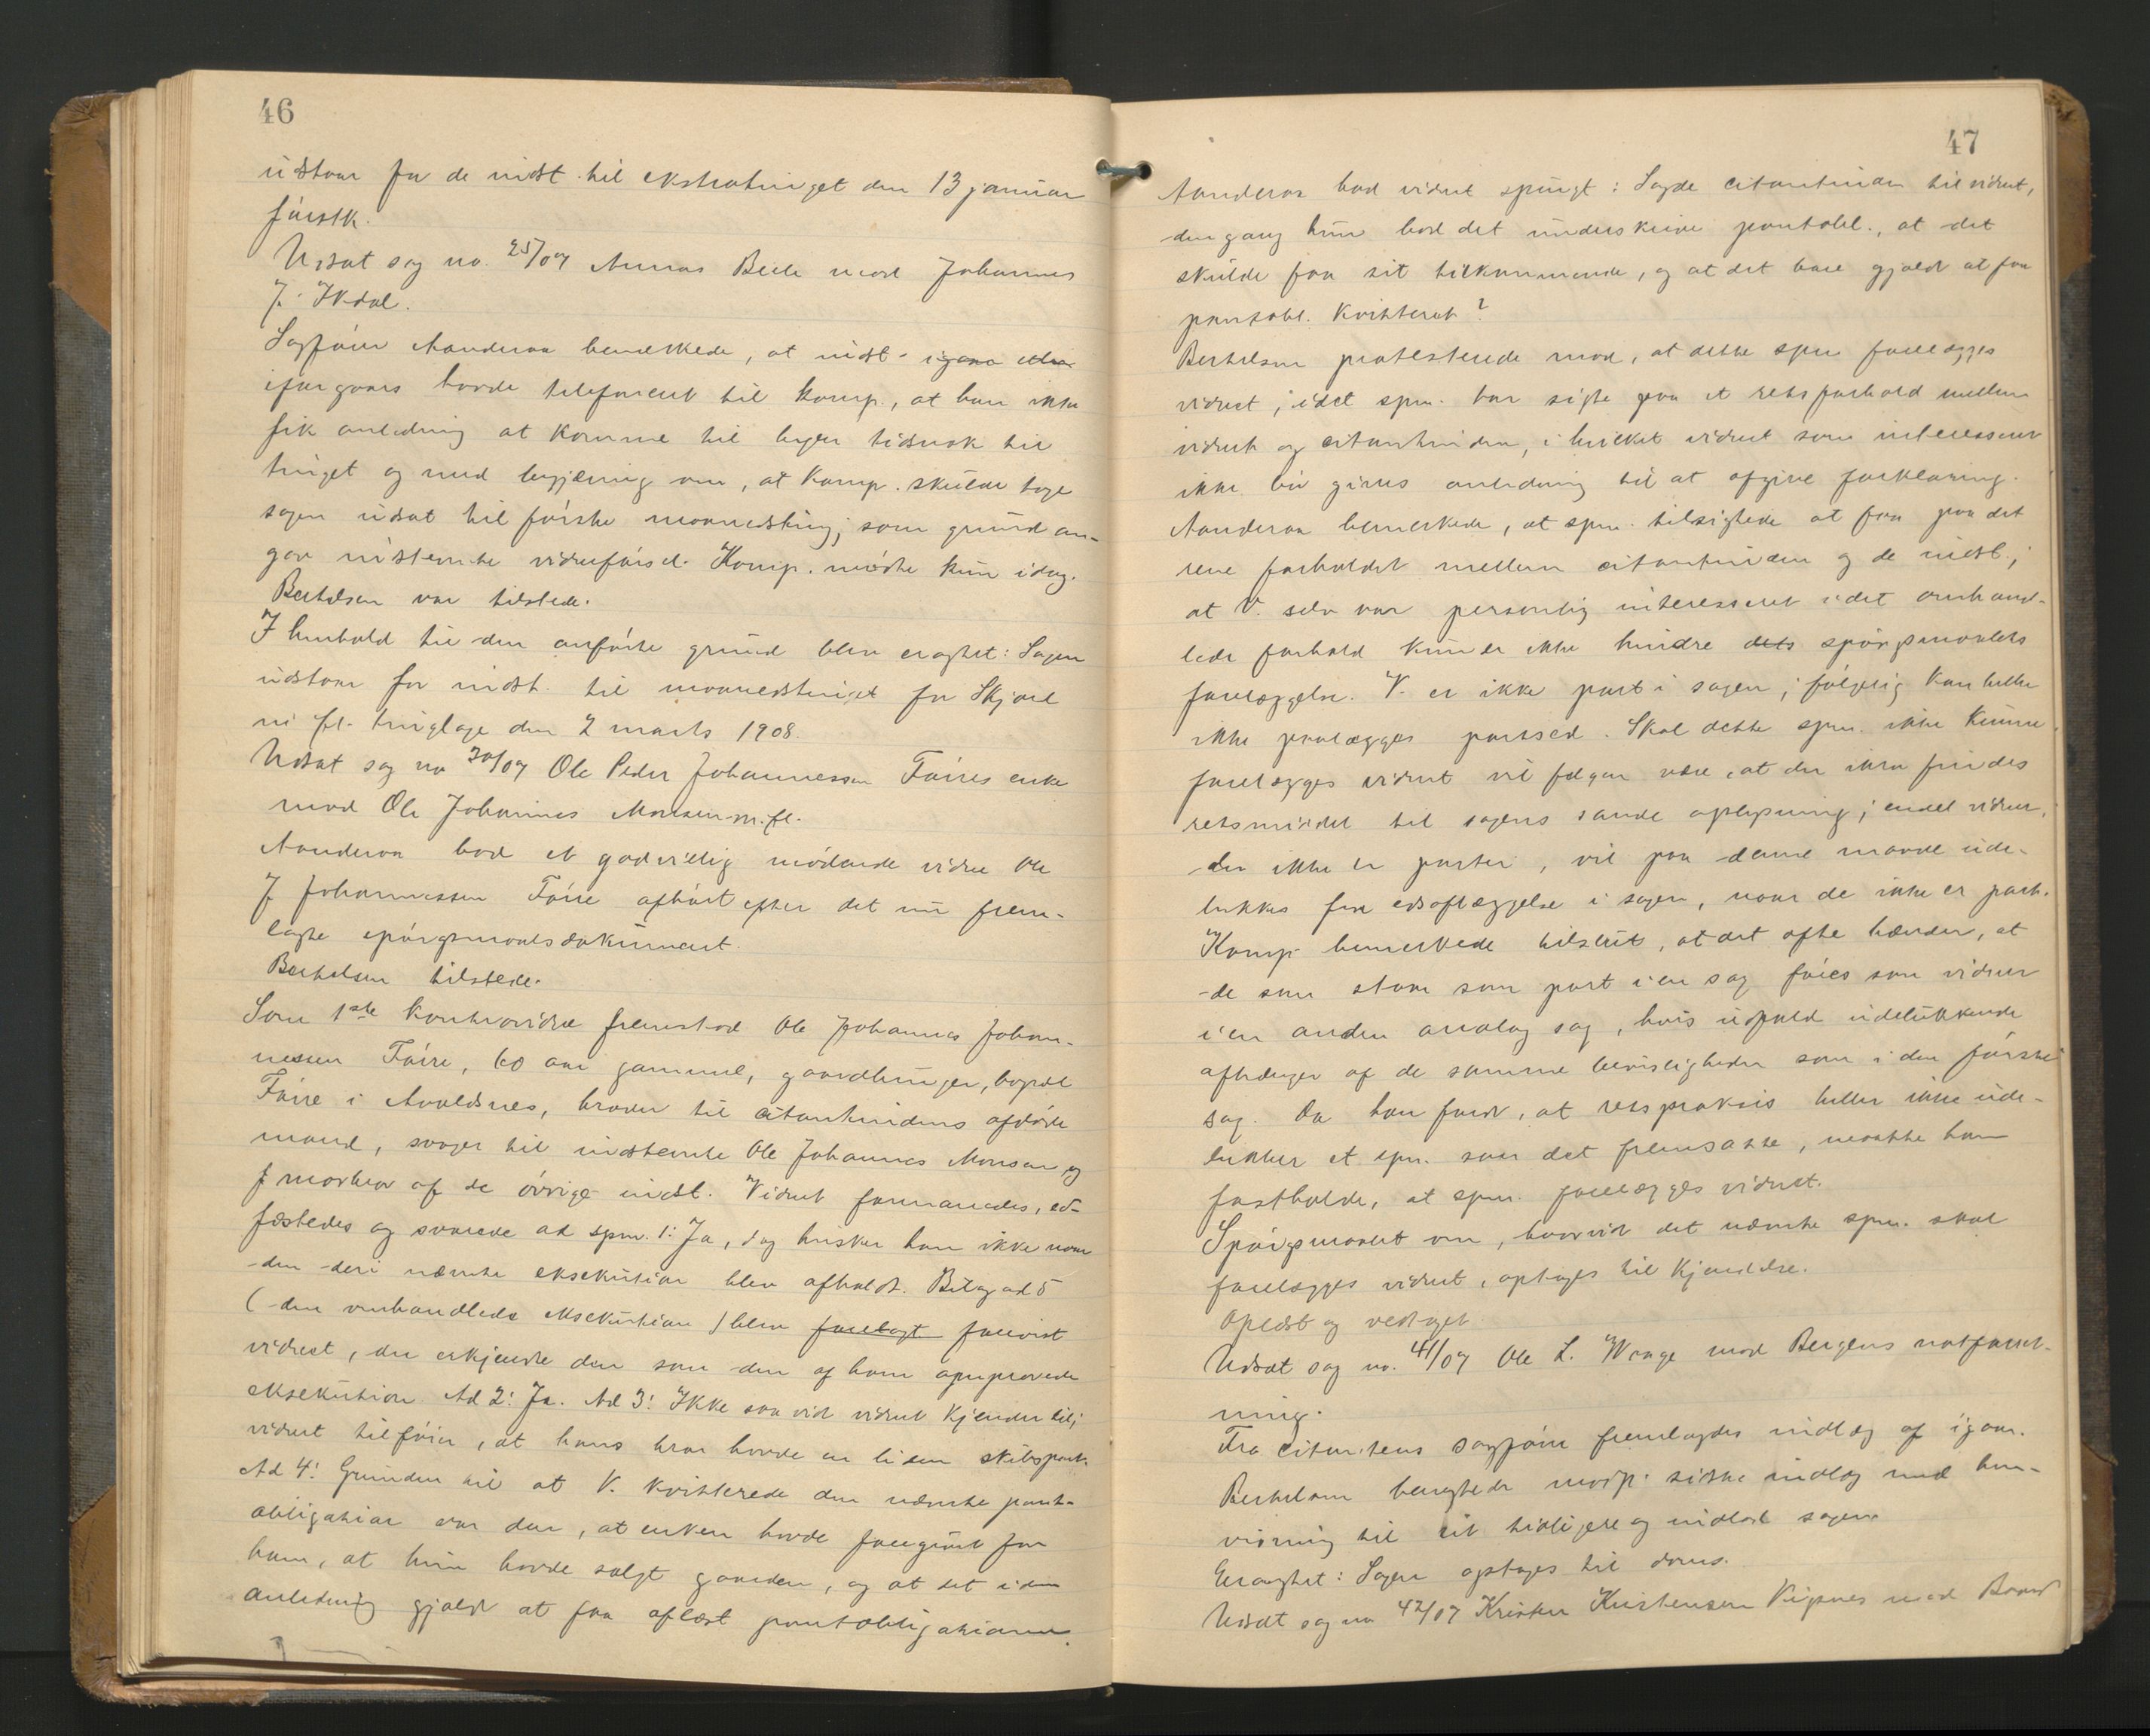 46
udstaar for de indst. til ekstratinget den 13 januar
førstk.
Udsat sag no. 25/07 Annas Beile mod Johannes
J. Ikdal.
Sagfører Aanderaa bemerkede, at indst. igaar eller
iforgaars havde telefoneret til komp., at han ikke
fik anledning at komme til byen tidsnok til
tinget og med begjæring om, at komp. skulde tage
sagen udsat til første maanedsting; som grund an-
gav indstevnte vidneførsel. Komp. mødte kun idag.
Bertelsen var tilstede.
I henhold til den anførte grund blev eragtet: Sagen
udstaar for indst. til maanedstinget for Skjold
m. fl. tinglage den 2 marts 1908.
Udsat sag no 30/07 Ole Peder Johannessen Føires enke
mod Ole Johannes Monsen m.fl.
Aanderaa bad et godvillig mødende vidne Ole
J Johannessen Føire afhørt efter det nu frem-
lagte spørgsmaalsdokument.
Bertelsen tilstede.
Som 1ste kontravidne fremstod Ole Johannes Johan-
nessen Føire, 60 aar gammel, gaardbruger, bopæl
Føire i Avaldsnes, broder til citantindens afdøde
mand, svoger til indstevnte Ole Johannes Monsen og
f morbror af de øvrige indst. Vidnet formanedes, ed-
fæstedes og svarede ad spm. 1: Ja, dog husker han ikke naar
den deri nævnte eksekution blev afholdt. Bilag ad 5
(den omhandlede eksekution) blev forelagt forevist
vidnet, der erkjendte den som den af ham
eksekution. Ad 2: Ja. Ad 3: Ikke saavidt vidnet kjender til;
vidnet tilføier, at hans bror havde en liden skibspart.
Ad 4: Grunden til at V. kvitterede den nævnte pant-
obligation var den, at enken havde foregivet for
ham, at hun havde solgt gaarden, og at det i den
anledning gjaldt at faa aflæst pantobligationen.
47
Aanderaa bad vidnet spurgt: Sagde citantinden til vidnet,
dengang hun bad det underskrive pantobl., at det
skulde faa sit tilkommende, og at det bare gjaldt at faa
pantobl. kvitteret?
Bertelsen protesterede mod, at dette spm forelægges
vidnet; idet spm. har sigte paa et retsforhold mellem
vidnet og citantinden, i hvilket vidnet som interesseret
ikke bør gives anledning til at afgive forklaring.
Aanderaa bemerkede, at spm. tilsigtede at faa paa det
rene forholdet mellem citantinden og de indst.;
at V. selv var personlig interesseret i det omhand-
lede forhold kunde ikke hindre dets spørgsmaalets
forelæggelse. V. er ikke part i sagen; følgelig kan heller
ikke paalægges partsed. Skal dette spm. ikke kunne
forelægges vidnet vil følgen være, at der ikke findes
retsmiddel til sagens sande oplysning; endel vidner,
der ikke er parter, vil paa denne maade ude-
lukkes fra edsaflæggelse i sagen, naar de ikke er part.
Komp. bemerkede tilslut, at det ofte hænder, at
de som staar som part i en sag føres som vidner
i en anden analog sag, hvis udfald udelukkende
afhænger af de samme bevisligheder som i den første
sag. Da han fandt, at retspraksis heller ikke ude-
lukker et spm. som det fremsatte, maatte han
fastholde, at spm. forelægges vidnet.
Spørgsmaalet om, hvorvidt det nævnte spm. skal
forelægges vidnet, optages til kjendelse.
Oplæst og vedtaget.
Udsat sag no. 41/07 Ole L. Waage mod Bergens notforret-
ning.
Fra citantens sagfører fremlagdes indlæg af igaar.
Bertelsen benegtede modp. sidste indlæg med hen-
visning til sit tidligere og indlod sagen.
Eragtet: Sagen optages til doms.
Udsat sag no 42/07 Kristen Kristensen Vigsnes mod Baard